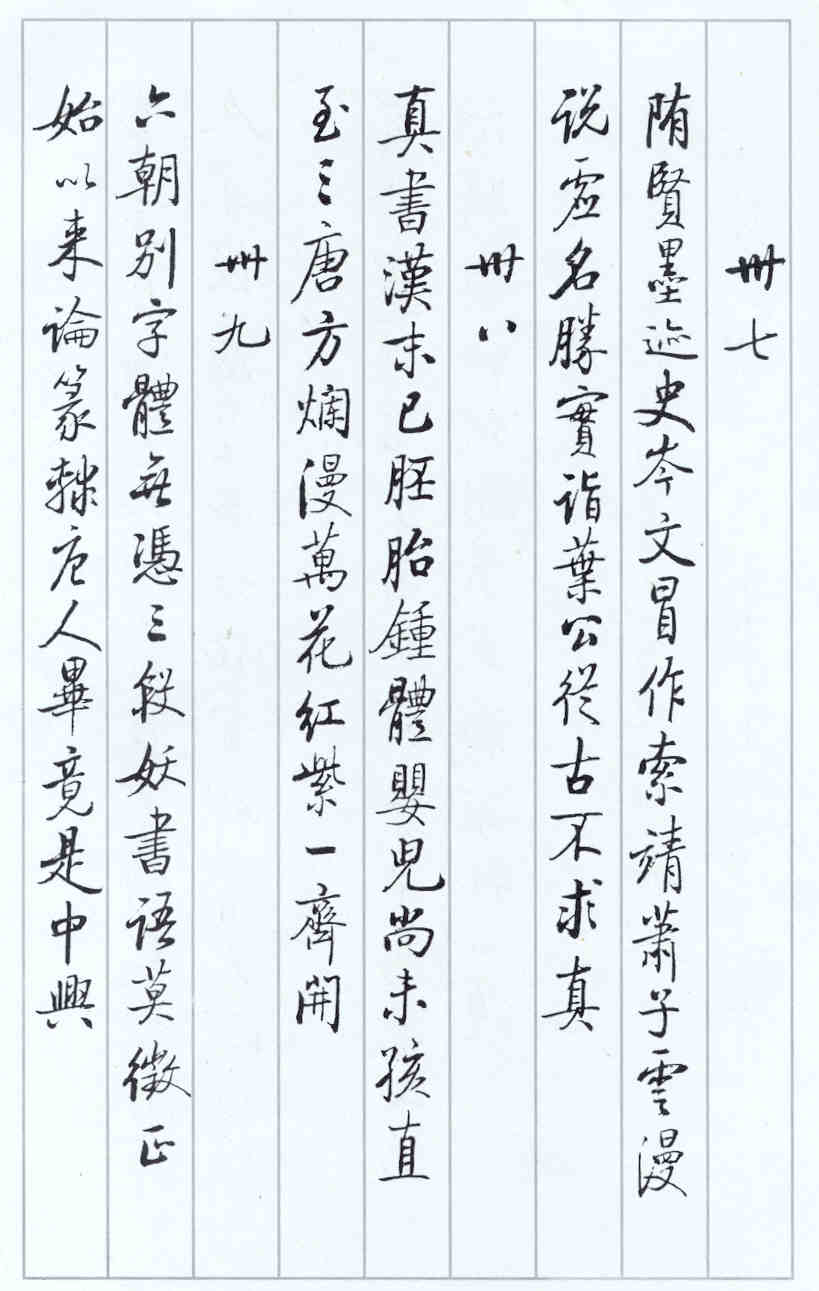 卅七
隋賢墨迹史岑文冒作索靖蕭子雲漫
说虚名勝實詣葉公從古不求真
卅八
真書漢末已胚胎鍾體嬰兒尚未孩直
至三唐方爛漫萬花紅紫一齊開
卅九
六朝别字體無憑三段妖書語莫徵正
始以来論篆隸唐人畢竟是中興